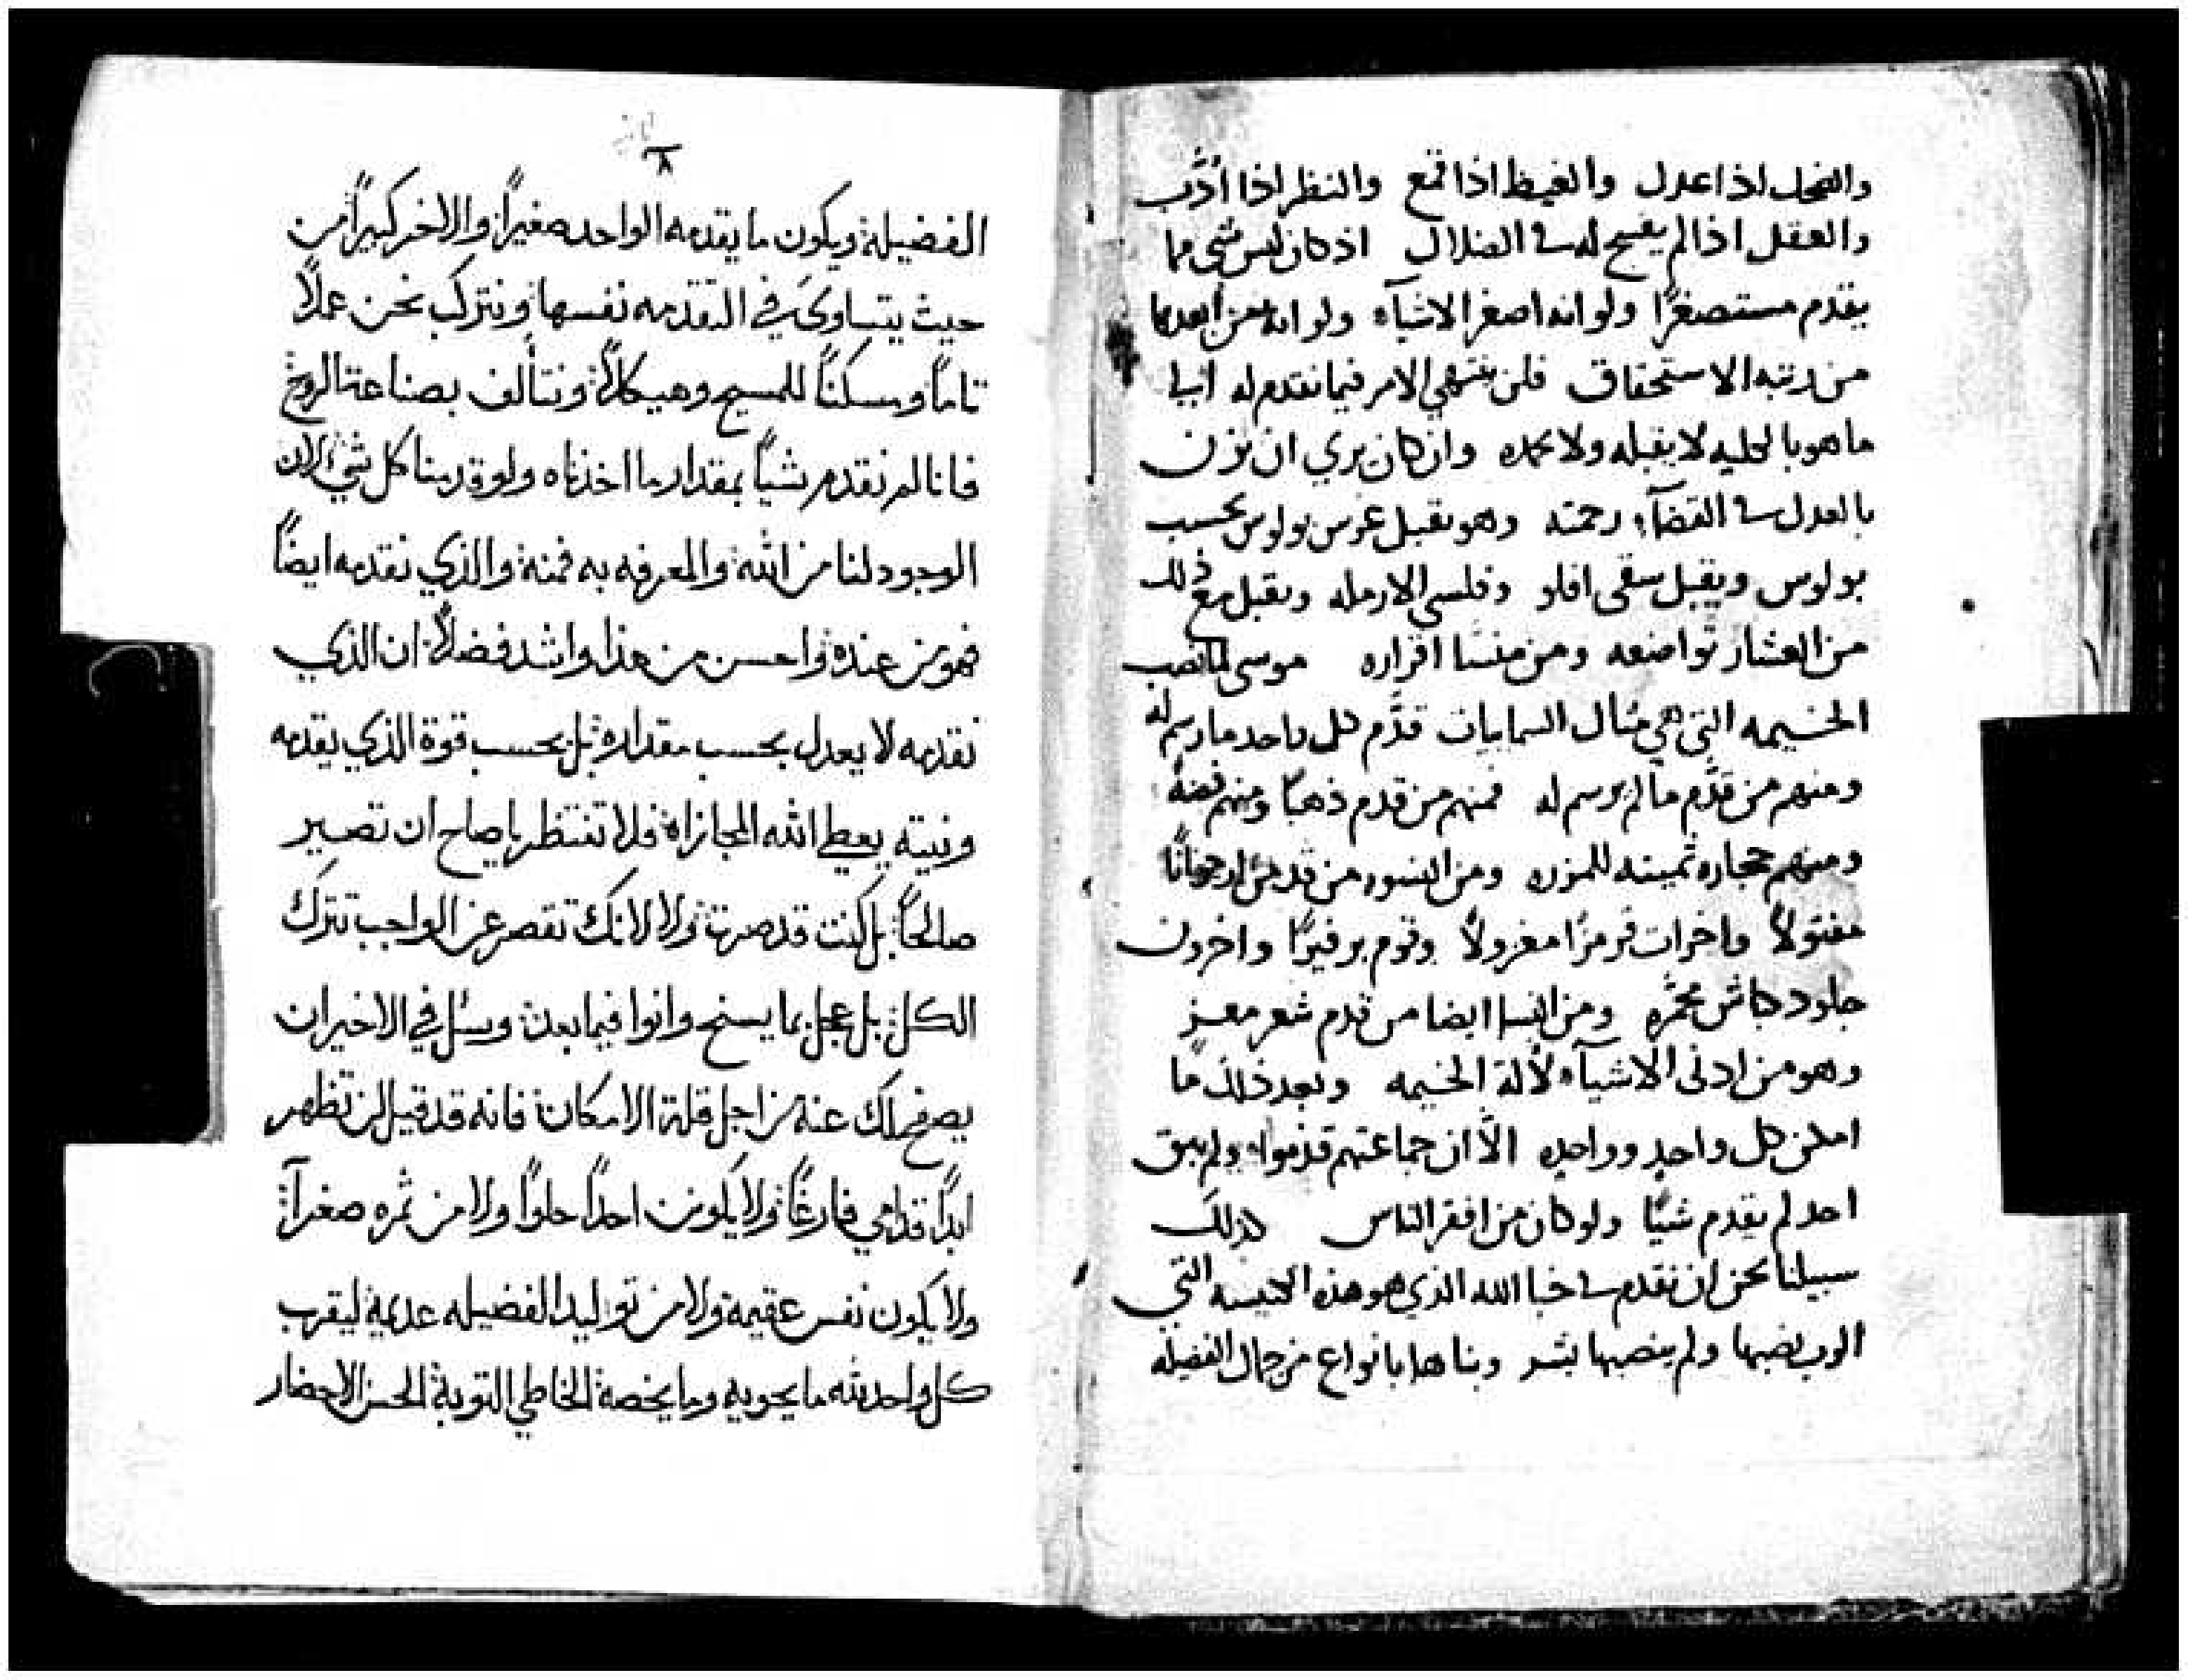 والضحك اذا عدل والغيظ اذا قمع والنظر اذا أُدِّب
والعقل اذا لم يفسح له في الضلال اذ كان ليس شي مما
يقدم مستصغرًا ولو انه اصغر الاشيآء ولو انه من أبعدها
من رتبة الاستحقاق فلن ينتهي الامر فيما نقدم له
ما هو بالكليه لا يقبله ولا يحمده وان كان يري ان يزن
بالعدل في القضآء رحمته وهو يقبل غرس بولوس بحسب
بولوس ويقبل سقي افلو وفلسي الارمله ويقبل مع ذلك
من العشار تواضعه ومن منسا اقراره موسى لما نصب
الخيمه التي هي مثال السمايات قدَّم كل واحد ما رسم له
ومنهم من قدَّم ما لم يرسم له فمنهم من قدم ذهبًا ومنهم فضة
ومنهم حجاره ثمينه للمزره ومن النسوه من قدمن ارجوانًا
مفتولاً واخرات قرمزًا مغزولاً وقوم برفيرًا واخرون
جلود كباش محمَّره ومن النسا ايضا من قدم شعر معز
وهو من ادنى الاشيآء لآلة الخيمه وبعد ذلك ما
امكن كل واحدٍ وواحده الاَّ ان جماعتهم قدموا ولم يبق
احد لم يقدم شيًا ولو كان من افقر الناس كذلك
سبيلنا نحن ان نقدم في خبا الله الذي هو هذه الكنيسه التي
الرب نصبها ولم ينصبها بشر وبناها بانواع من جمال الفضيله
٨
الفضيلة ويكون ما يقدمه الواحد صغيرًا والاخر كبيرًا من
حيث يتساوى في التقدمه نفسها ونتركب نحن عملاً
تامًا ومسكنًا للمسيح وهيكلاً ونتألف بصناعة الروح
فانا لم نقدم شيًا بمقدار ما اخذناه ولو قدمنا كل شي لان
الوجود لنا من الله والمعرفه به فمنه والذي نقدمه ايضًا
فهو من عنده واحسن من هذا واشد فضلاً ان الذي
نقدمه لا يعدل بحسب مقداره بل بحسب قوة الذي يقدمه
ونيته يعطي الله المجازاه فلا تنتظر يا صاح ان تصير
صالحًا بل كنت قد صرت ولا لانك تقصر عن الواجب تترك
الكل بل عجل بما يسنح وانوا فيما بعد وسل في الاخير ان
يصفح لك عنه من اجل قلة الامكان فانه قد قيل لن تظهر
ابدًا قدامي فارغًا ولا يكونن احدًا خلوًا ولا من ثمره صغرآ
ولا يكون نفس عقيمة ولا من توليد الفضيله عديمة ليقرب
كل واحد لله ما يحويه وما يخصه الخاطي التوبة الحسن الاحضار